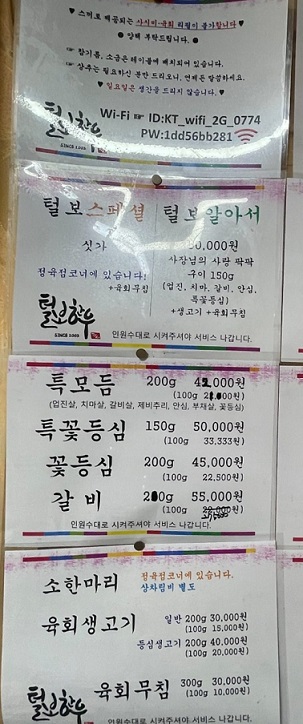 ♥ 스끼로 제공되는 사시미·육회 리필이 불가합니다 ♥
● 양해 부탁드립니다. ●
☞ 참기름, 소금은 테이블에 배치되어 있습니다.
☞ 상추는 필요하신 분만 드리오니, 언제든 말씀하세요.
♥ 일요일은 생간을 드리지 않습니다. ♥
털보한우
SINCE 1989
Wi-Fi ☞ ID:KT_wifi_2G_0774
PW:1dd56bb281
털보스페셜
싯가
정육점코너에 있습니다!
+육회무침
털보알아서
0,000원
사장님의 사랑 팍팍
구이 150g
(업진, 치마, 갈비, 안심,
특꽃등심)
+생고기 +육회무침
털보한우
인원수대로 시켜주셔야 서비스 나갑니다.
특모듬 200g ,000원
(100g ,000원)
(업진살, 치마살, 갈비살, 제비추리, 안심, 부채살, 꽃등심)
특꽃등심 150g 50,000원
(100g 33,333원)
꽃등심 200g 45,000원
(100g 22,500원)
갈비 55,000원
(100g
인원수대로 시켜주셔야 서비스 나갑니다.
소한마리 정육점코너에 있습니다.
상차림비 별도
육회생고기 일반 200g 30,000원
(100g 15,000원)
등심생고기 200g 40,000원
(100g 20,000원)
육회무침 300g 30,000원
(100g 10,000원)
털보한우
인원수대로 시켜주셔야 서비스 나갑니다.